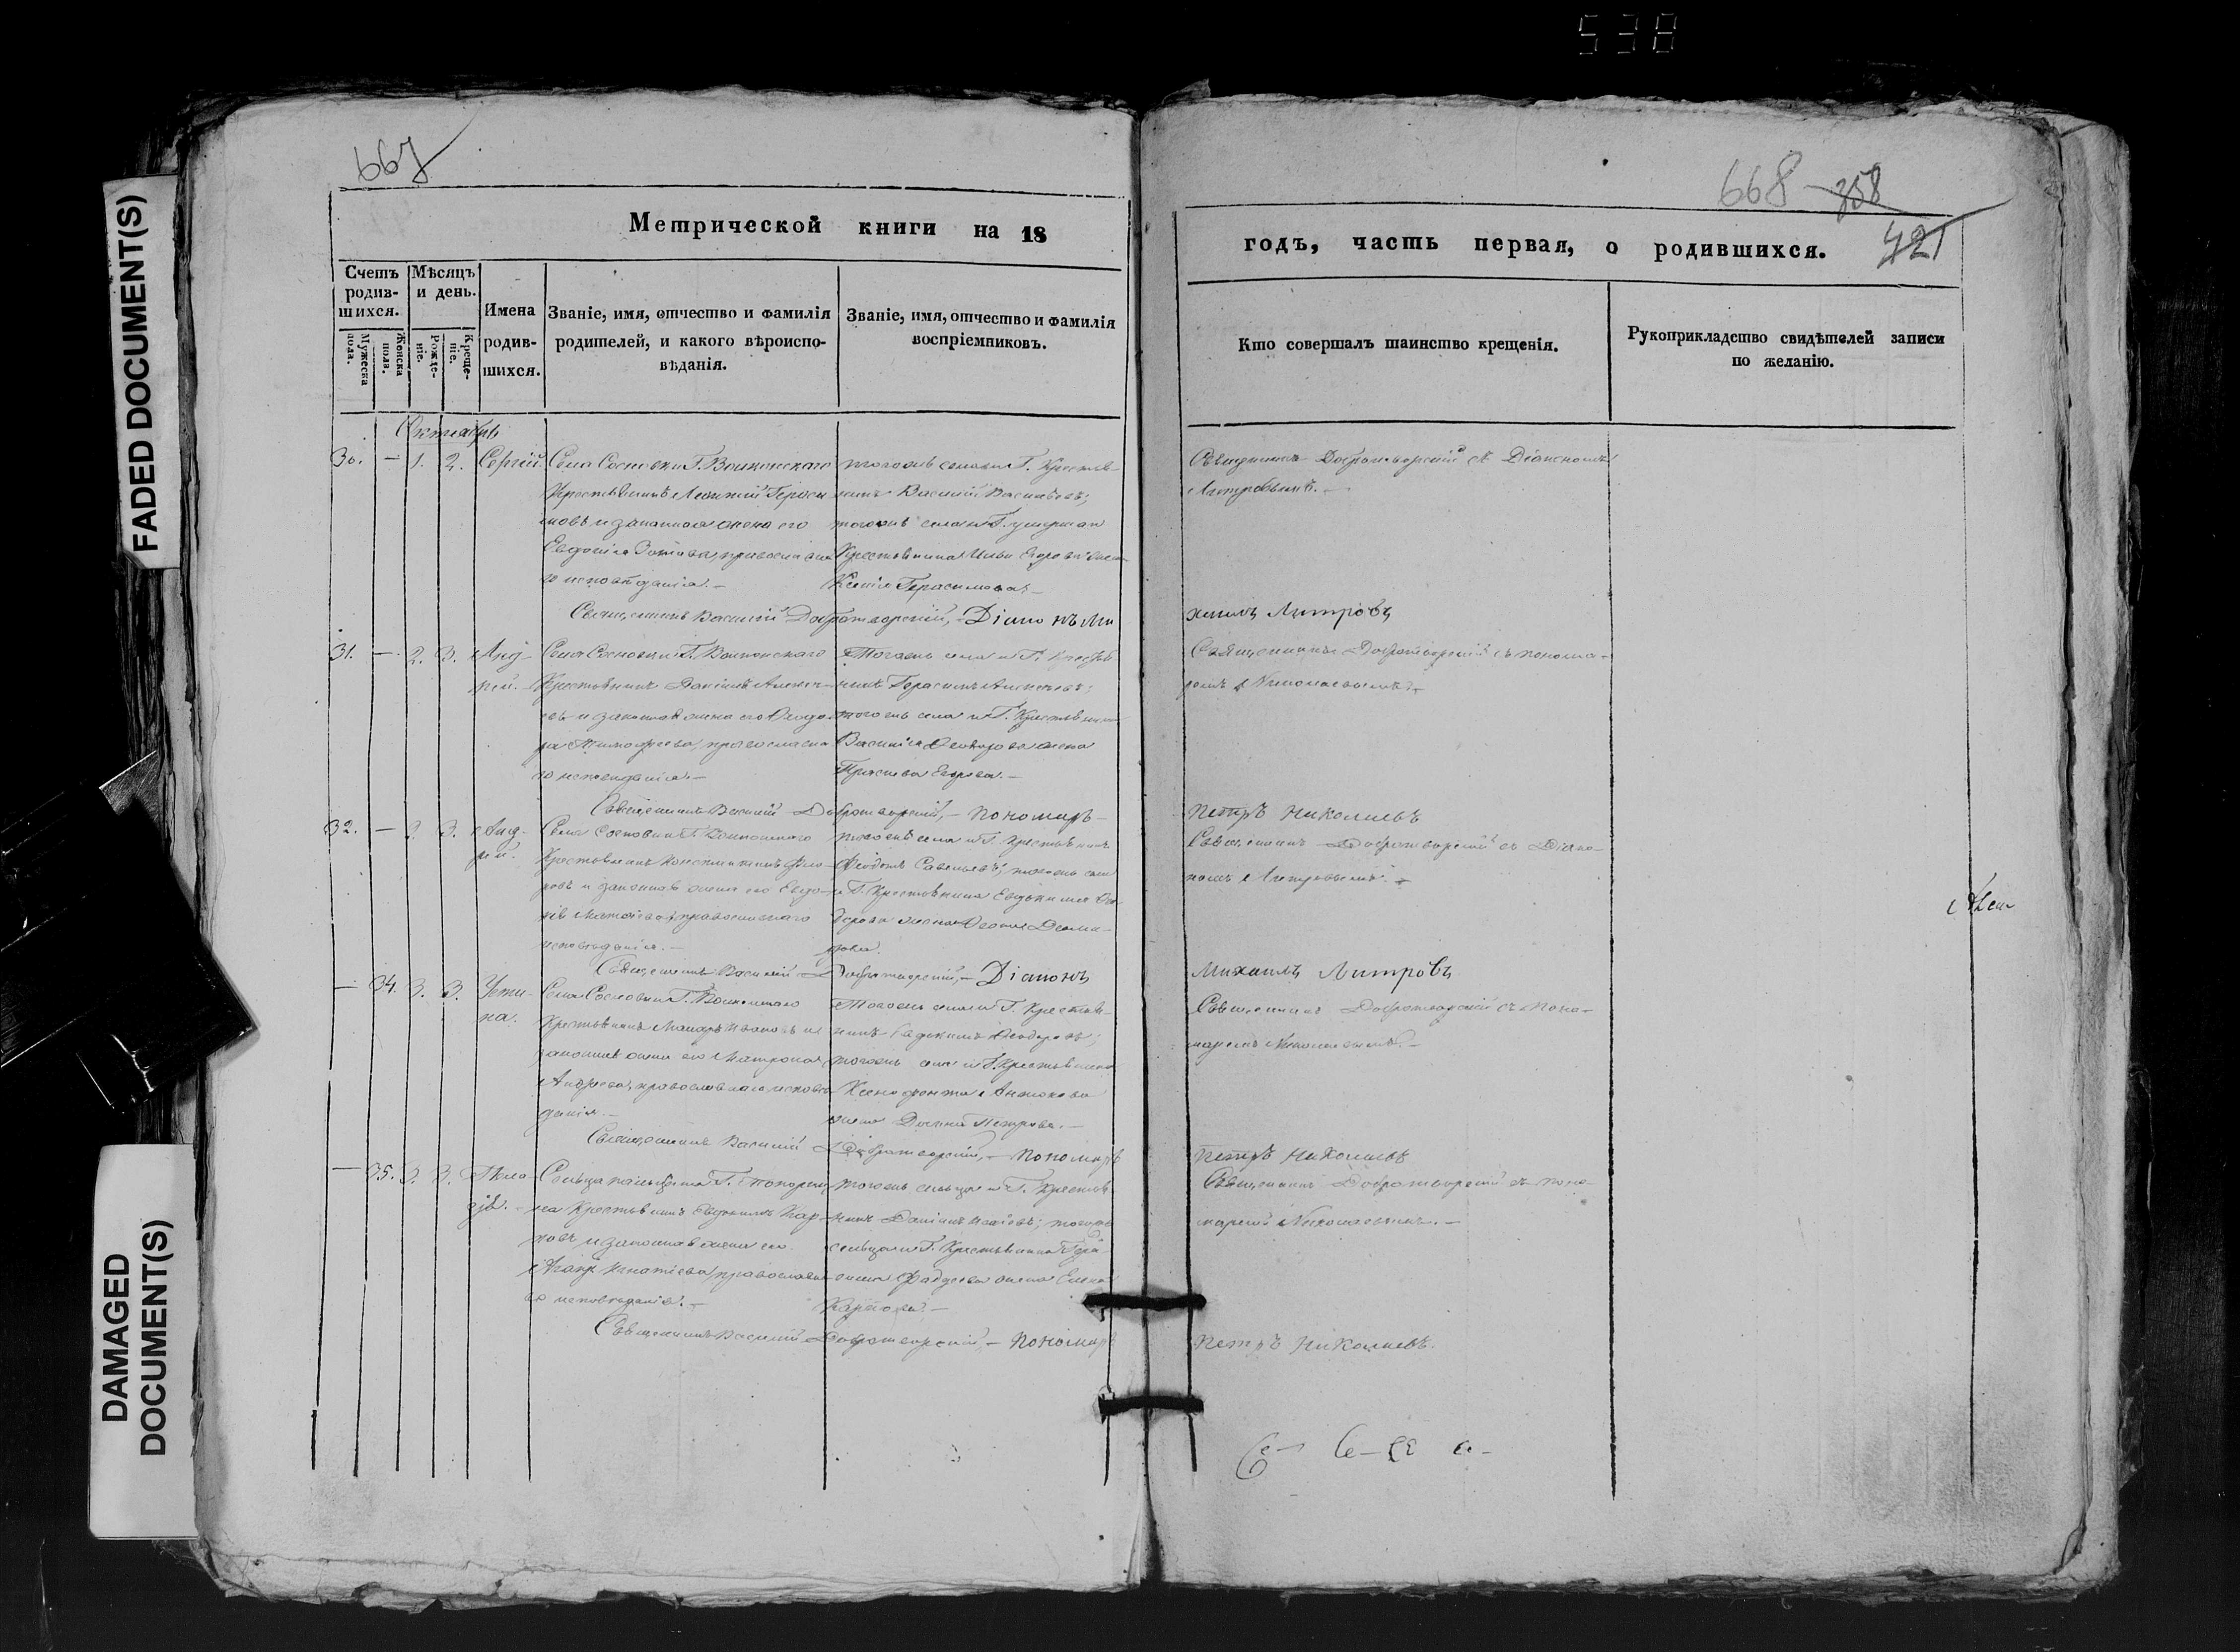 538
FADED DOCUMENT(S)
DAMAGED
DOCUMENT(S)
667
Метрической книги на 18
Счетъ родив-шихся.
Мужеска пола.
Женска пола.
Мѣсяцъ и день.
Рожде-ніе.
Креще-ніе.
Имена родив-шихся.
Званіе, имя, отчество и фамилія родителей, и какого вѣроиспо-вѣданія.
Званіе, имя, отчество и фамилія воспріемниковъ.
Октябрь
30. — 1. 2. Сергій
Села Сосновки Г. Волконскаго
Крестьянинъ Леонтій Гераси
мовъ и законная жена его
Евдокія Зотова, православна
го исповѣданія. —
тогожъ села и Г. Крестья-
нинъ Василій Васильевъ;
тогожъ села и Г. умершаго
Крестьянина Ильи Егорова жена
Ксенія Герасимова. —
Священникъ Василій Добротворскій, — Діаконъ Ми
31. — 2. 3. Анд-
рей.
Села Сосновки Г. Волконскаго
Крестьянинъ Даніилъ Алексѣ-
евъ и законная жена его Ѳеодо
ра Тимофеева, православна
го исповѣданія. —
Тогожъ села и Г. Крестья
нинъ Герасимъ Алексѣевъ;
тогожъ села и Г. Крестьянина
Василія Ѳеодорова жена
Прасковья Егорова. —
Священникъ Василій Добротворскій, — Пономарь —
32. — 2. 3. Анд-
рей.
Села Сосновки Г. Волконскаго
Крестьянинъ Константинъ
ровъ и законная жена его Евдо-
кія православнаго
исповѣданія. —
тогожъ села и Г. Крестьянинъ
Савельевъ; тогожъ села
и Г. Крестьянина Евдокима Ѳео-
дорова жена
Священникъ Василій Добротворскій, — Діаконъ
— 34. 3. 3. Усти-
на.
Села Сосновки Г. Волконскаго
Крестьянинъ Макаръ Ивановъ и
законная жена его Матрона
Андреева, православнаго исповѣ
данія. —
Тогожъ села и Г. Крестья-
нинъ Евдокимъ Ѳеодоровъ;
тогожъ села и Г. Крестьянина
Ксенофонта Антонова
жена Петрова. —
Священникъ Василій Добротворскій, — Пономарь
— 35. 3. 3. Пела-
гія.
Сельца Г.
на Крестьянинъ Евдокимъ Кар-
повъ и законная жена его
Игнатіева, православна
го исповѣданія. —
тогожъ сельца и Г. Крестья
нинъ Даніилъ тогожъ
сельца и Г. Крестьянина Гера-
сима Фадѣева жена Елена
Карпова. —
Священникъ Василій Добротворскій, — Пономарь
668 — 358
421
годъ, часть первая, о родившихся.
Кто совершалъ таинство крещенія.
Рукоприкладство свидѣтелей записи по желанію.
Священникъ Добротворскій съ Діакономъ
Митровымъ. —
хаилъ Митровъ
Священникъ Добротворскій съ понома-
ремъ Николаевымъ. —
Петръ Николаевъ
Священникъ Добротворскій съ Діако-
номъ Митровымъ. —
Михаилъ Митровъ
Священникъ Добротворскій съ Поно-
маремъ Николаевымъ. —
Петръ Николаевъ
Священникъ Добротворскій съ Поно-
маремъ Николаевымъ. —
Петръ Николаевъ.